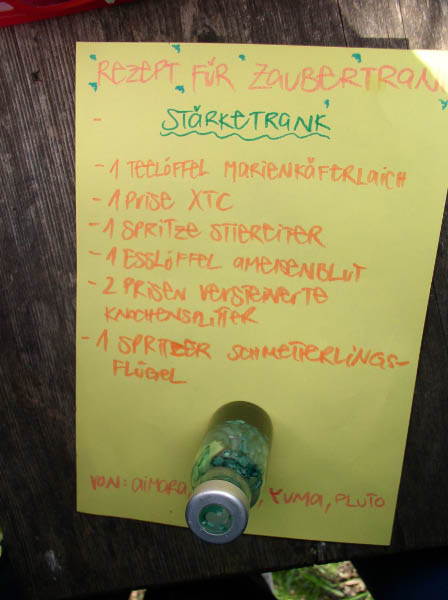 REZEPT FÜR ZAUBERTRANK
- STÄRKETRANK
- 1 TEELÖFFEL MARIENKÄFERLAICH
- 1 PRISE XTC
- 1 SPRITZE STIEREITER
- 1 ESSLÖFFEL AMEISENBLUT
- 2 PRISEN VERSTEINERTE
KNOCHENSPLITTER
- 1 SPRITZER SCHMETTERLINGS-
FLÜGEL
VON: AIMARA, YUMA, PLUTO